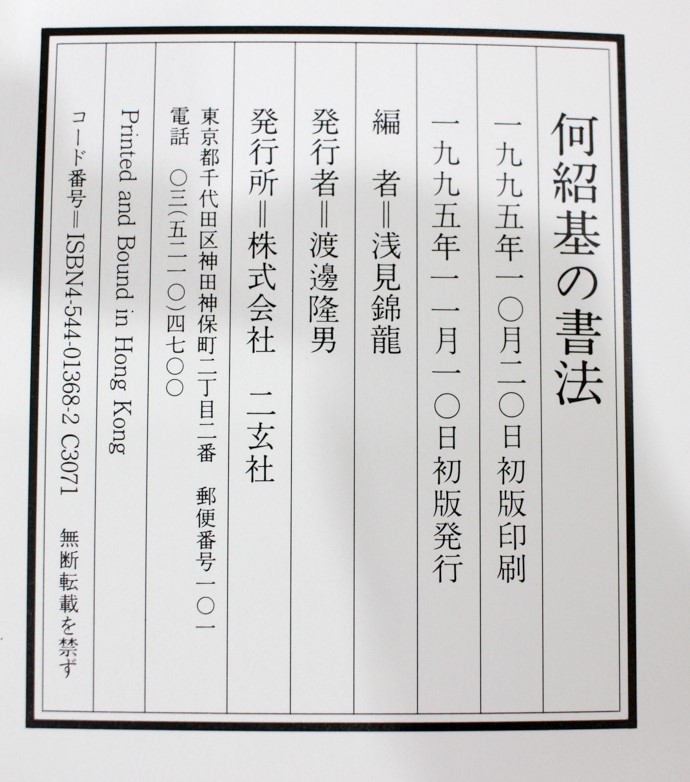 何紹基の書法
一九九五年一〇月二〇日初版印刷
一九九五年一一月一〇日初版発行
編　者＝浅見錦龍
発行者＝渡邊隆男
発行所＝株式会社　二玄社
東京都千代田区神田神保町二丁目二番　郵便番号一〇一
電話　〇三(五二一〇)四七〇〇
Printed and Bound in Hong Kong
コード番号＝ISBN4-544-01368-2 C3071　無断転載を禁ず